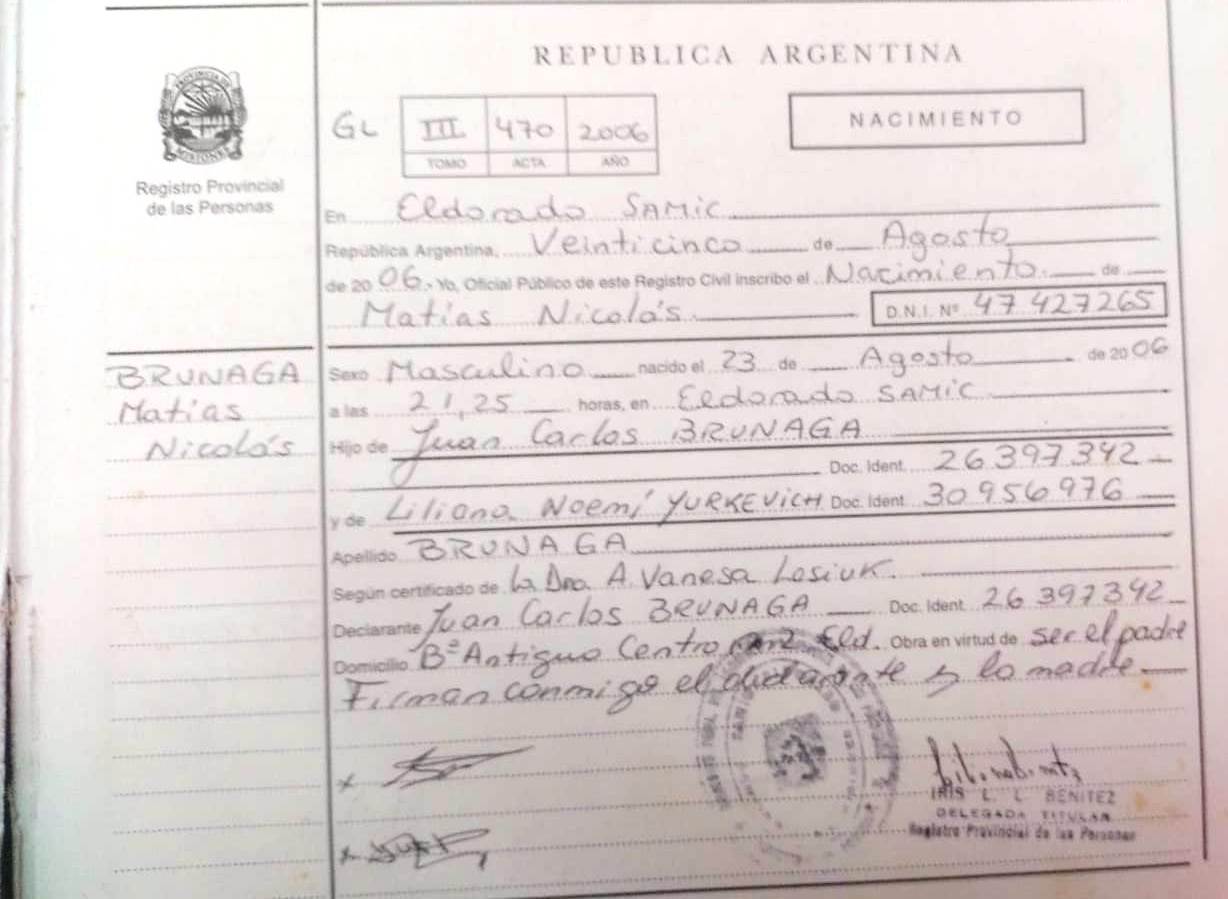 REPUBLICA ARGENTINA
PROVINCIA DE MISIONES
Registro Provincial
de las Personas
GL III 470 2006
TOMO ACTA AÑO
NACIMIENTO
En Eldorado SAMIC
República Argentina, Veinticinco de Agosto
de 2006. Yo, Oficial Público de este Registro Civil inscribo el Nacimiento. de
Matías Nicolás D.N.I. Nº 47 427265
BRUNAGA
Matías
Nicolás
Sexo Masculino nacido el 23 de Agosto de 2006
a las 21,25 horas, en Eldorado SAMIC
Hijo de Juan Carlos BRUNAGA
Doc. Ident. 26397342
y de Liliana Noemí YURKEVICH Doc. Ident. 30956976
Apellido BRUNAGA
Según certificado de la Dra. A. Vanesa Losiuk.
Declarante Juan Carlos BRUNAGA Doc. Ident. 26397342
Domicilio Bº Antiguo Centro Eld. Obra en virtud de ser el padre
Firman conmigo el declarante y la madre
IRIS L. L. BENITEZ
DELEGADA TITULAR
Registro Provincial de las Personas